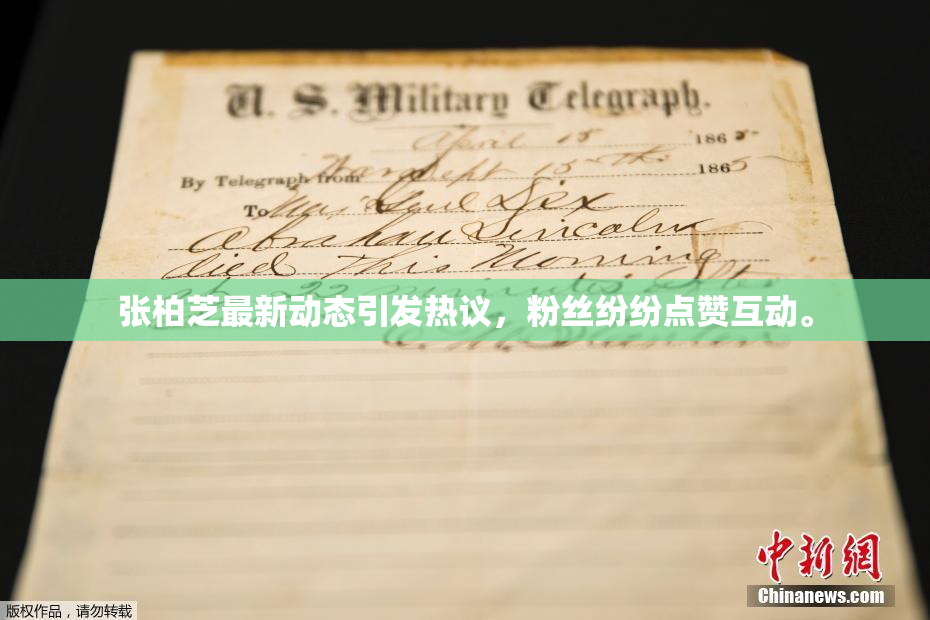 U. S. Military Telegraph.
April 15 1865
By Telegraph from War Dept 15th 1865
To Maj Genl Dix
Abraham Lincoln
died This Morning
at 22 minutes after
张柏芝最新动态引发热议，粉丝纷纷点赞互动。
中新网
Chinanews.com
版权作品，请勿转载